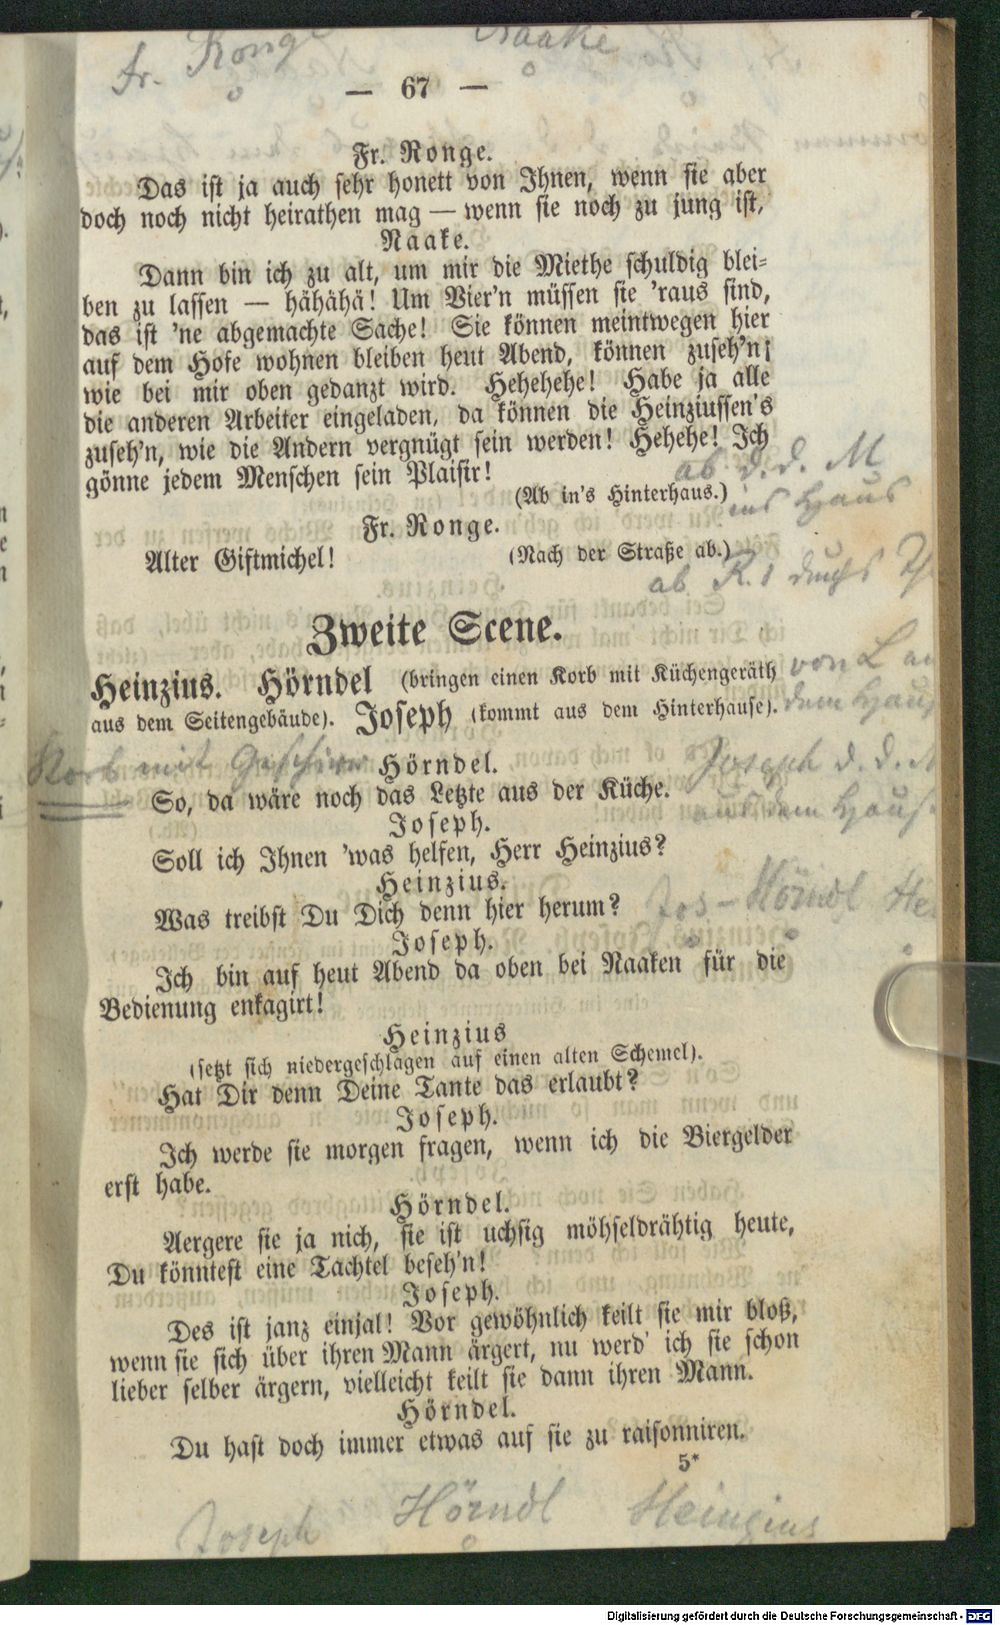 Fr. Ronge Naake
— 67 —
Fr. Ronge.
Das ist ja auch sehr honett von Ihnen, wenn sie aber
doch noch nicht heirathen mag — wenn sie noch zu jung ist,
Naake.
Dann bin ich zu alt, um mir die Miethe schuldig blei-
ben zu lassen — hähähä! Um Vier'n müssen sie 'raus sind,
das ist 'ne abgemachte Sache! Sie können meintwegen hier
auf dem Hofe wohnen bleiben heut Abend, können zuseh'n;
wie bei mir oben gedanzt wird. Hehehehe! Habe ja alle
die anderen Arbeiter eingeladen, da können die Heinziussen's
zuseh'n, wie die Andern vergnügt sein werden! Hehehe! Ich
gönne jedem Menschen sein Plaisir!
ab d. d. M
(Ab in's Hinterhaus.)
ins Haus
Fr. Ronge.
Alter Giftmichel! (Nach der Straße ab.)
ab R. 1 durchs
Zweite Scene.
Heinzius. Hörndel (bringen einen Korb mit Küchengeräth
von L
aus dem Seitengebäude). Joseph (kommt aus dem Hinterhause).
dem Haus
Korb mit Geschirr
Hörndel.
Joseph d. d. M
So, da wäre noch das Letzte aus der Küche.
aus dem Haus
Joseph.
Soll ich Ihnen 'was helfen, Herr Heinzius?
Heinzius.
Jos - Hörndl
Was treibst Du Dich denn hier herum?
Joseph.
Ich bin auf heut Abend da oben bei Naaken für die
Bedienung enkagirt!
Heinzius
(setzt sich niedergeschlagen auf einen alten Schemel).
Hat Dir denn Deine Tante das erlaubt?
Joseph.
Ich werde sie morgen fragen, wenn ich die Biergelder
erst habe.
Hörndel.
Aergere sie ja nich, sie ist uchsig möhseldrähtig heute,
Du könntest eine Tachtel beseh'n!
Joseph.
Des ist janz einjal! Vor gewöhnlich keilt sie mir bloß,
wenn sie sich über ihren Mann ärgert, nu werd' ich sie schon
lieber selber ärgern, vielleicht keilt sie dann ihren Mann.
Hörndel.
Du hast doch immer etwas auf sie zu raisonniren.
5*
Joseph Hörndl Heinzius
Digitalisierung gefördert durch die Deutsche Forschungsgemeinschaft - DFG